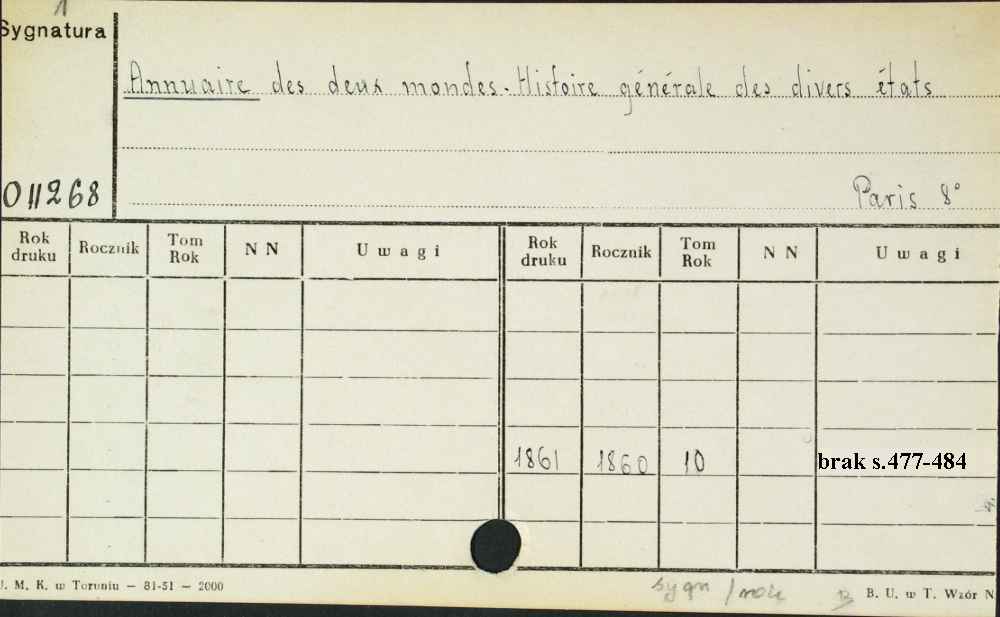 1
Sygnatura
Annuaire des deux mondes. Histoire générale des divers états
011268
Paris 8°
Rok druku Rocznik Tom Rok N N Uwagi Rok druku Rocznik Tom Rok N N Uwagi
1861 1860 10 brak s.477-484
J. M. K. w Toruniu — 81-51 — 2000
sygn /
B. U. w T. Wzór N